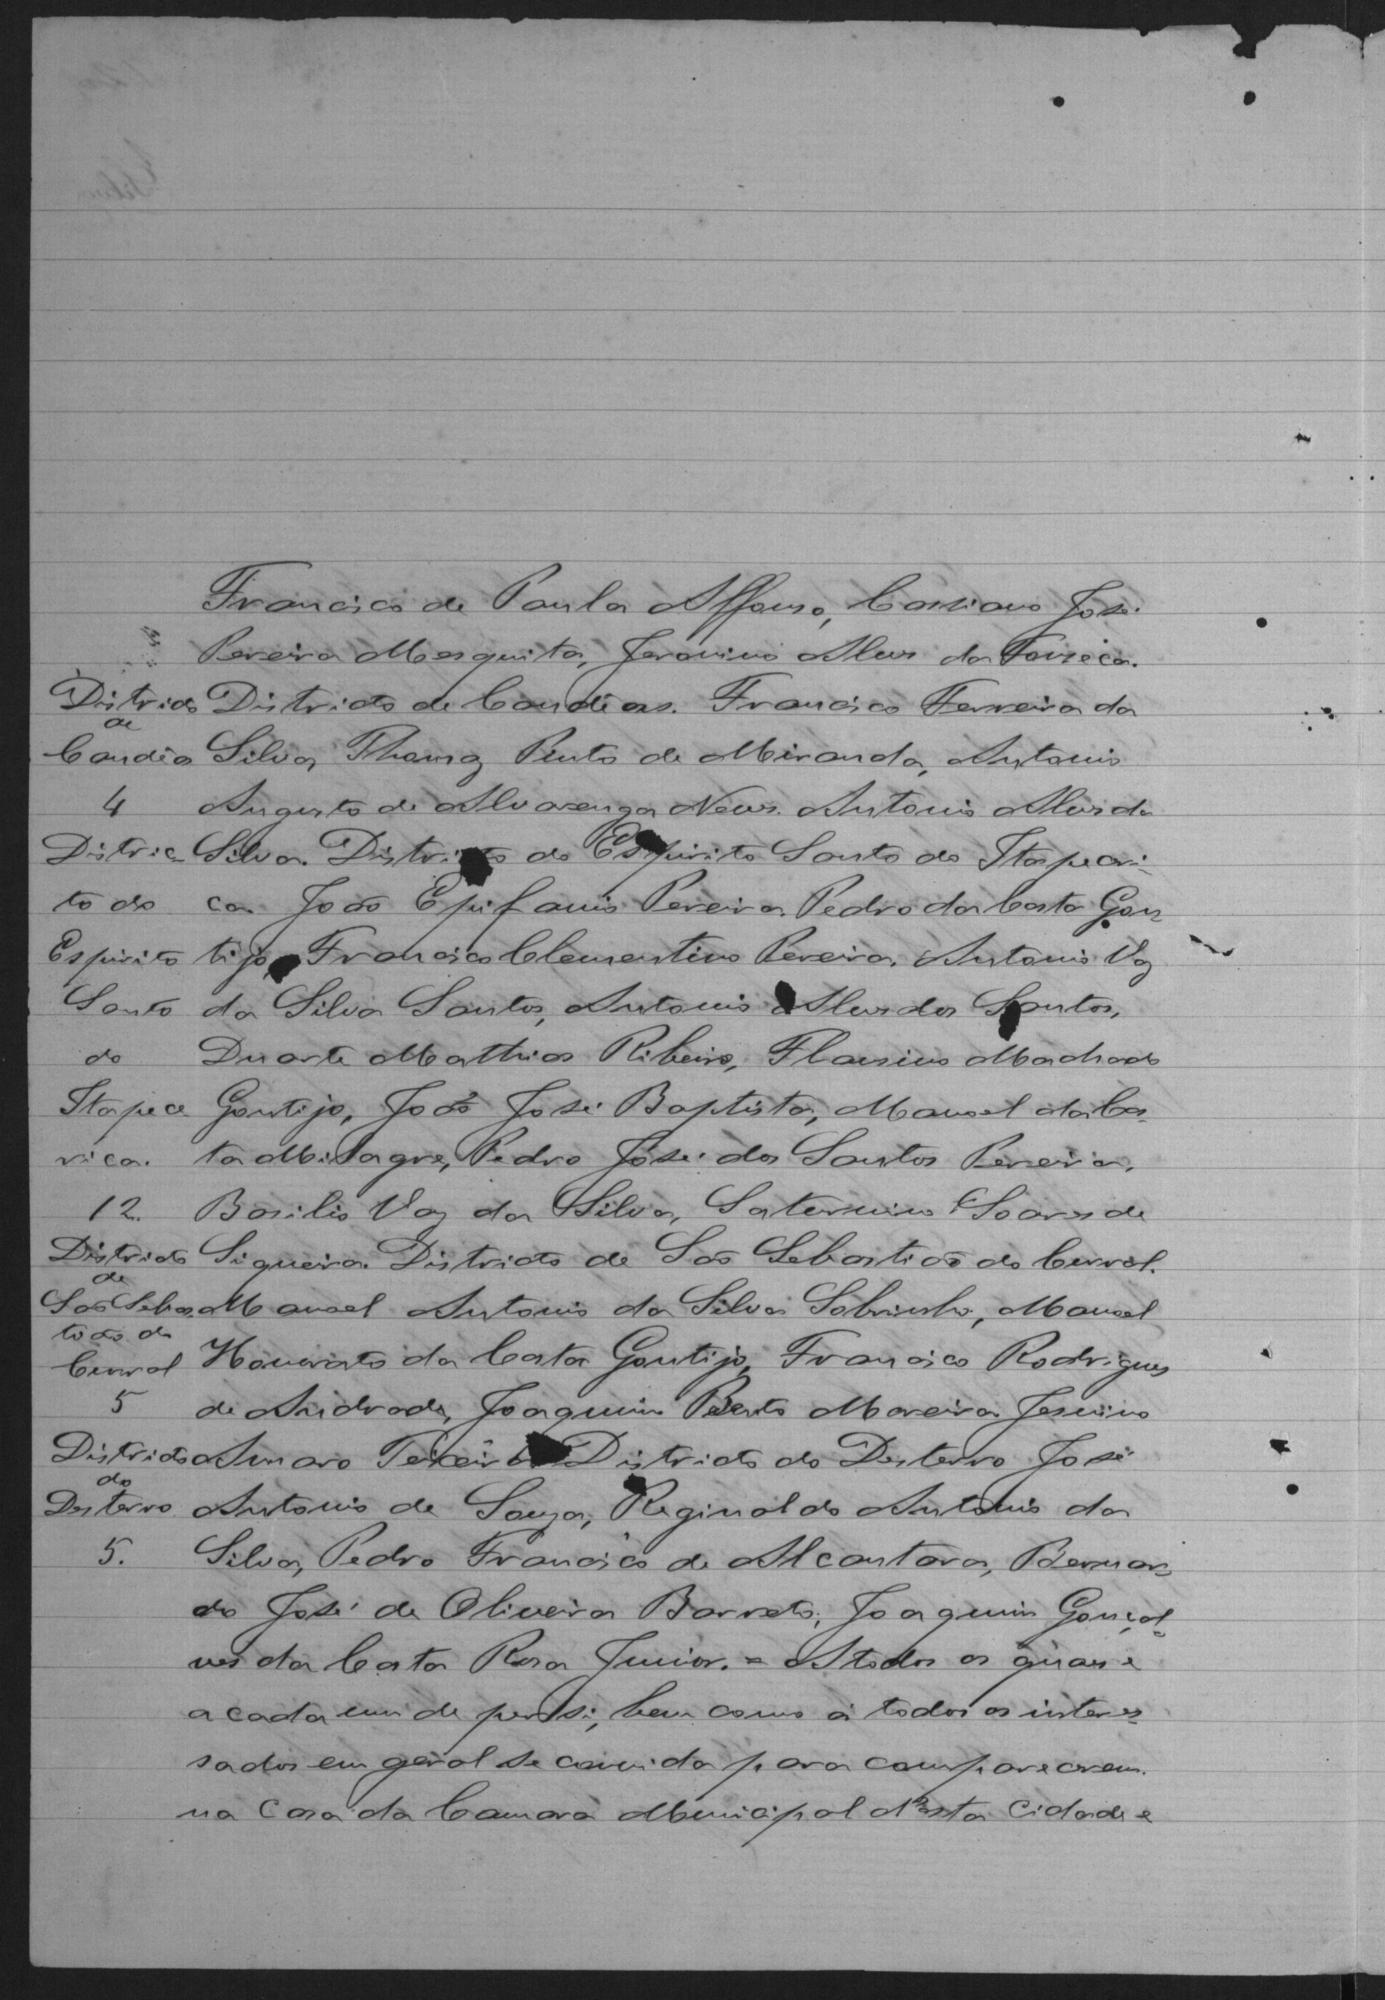 Francisco de Paula Affonso, Cassiano José
Pereira Mesquita, Jeronimo Alves da Fonseca.
Districto Districto de Candêas. Francisco Ferreira da
de
Candêa Silva, Thomaz Pinto de Miranda, Antonio
4 Augusto de Alvarenga Neves. Antonio Alves da
Distric Silva. Districto do Espirito Santo do Itapeceri-
to do ca. João Epifanio Pereira. Pedro da Costa Gon
Espirito tijo, Francisco Clementino Pereira. Antonio Vaz
Santo da Silva Santos, Antonio Alves dos Santos,
do Duarte Mathias Ribeiro, Flausino Machado
Itapece Gontijo, João José Baptista, Manoel da Cos-
rica. ta Milagre, Pedro José dos Santos Pereira,
12. Basilio Vaz da Silva, Saternino Soares de
Districto Siqueira. Districto de São Sebastião do Curral.
de
São Sebas Manoel Antonio da Silva Sobrinho, Manoel
tião do
Curral Honorato da Costa Gontijo, Francisco Rodrigues
5 de Andrade, Joaquim Bento Moreira Jesuino
Districto Amaro Teixeira Districto do Desterro José
do
Desterro Antonio de Souza, Reginaldo Antonio da
5. Silva, Pedro Francisco de Alcantara, Bernar=
do José de Oliveira Barreto, Joaquim Gonçal=
ves da Costa Rosa Junior. = A todos os quaes e
a cada um de per si, bem como á todos os interes=
sados em geral se convida para comparecerem
na Casa da Camara Municipal d'esta Cidade e